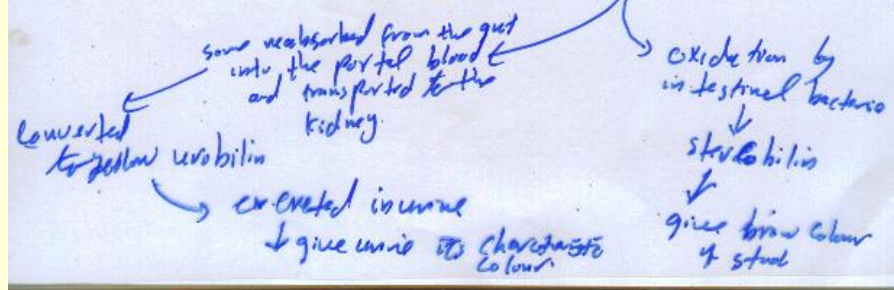 some reabsorbed from the gut
into the portal blood
and transported to the
kidney.
Converted
to yellow urobilin
excreted in urine
↓ give urine its characteristic
colour
oxidation by
intestinal bacteria
↓
stercobilin
↓
give brown colour
of stool